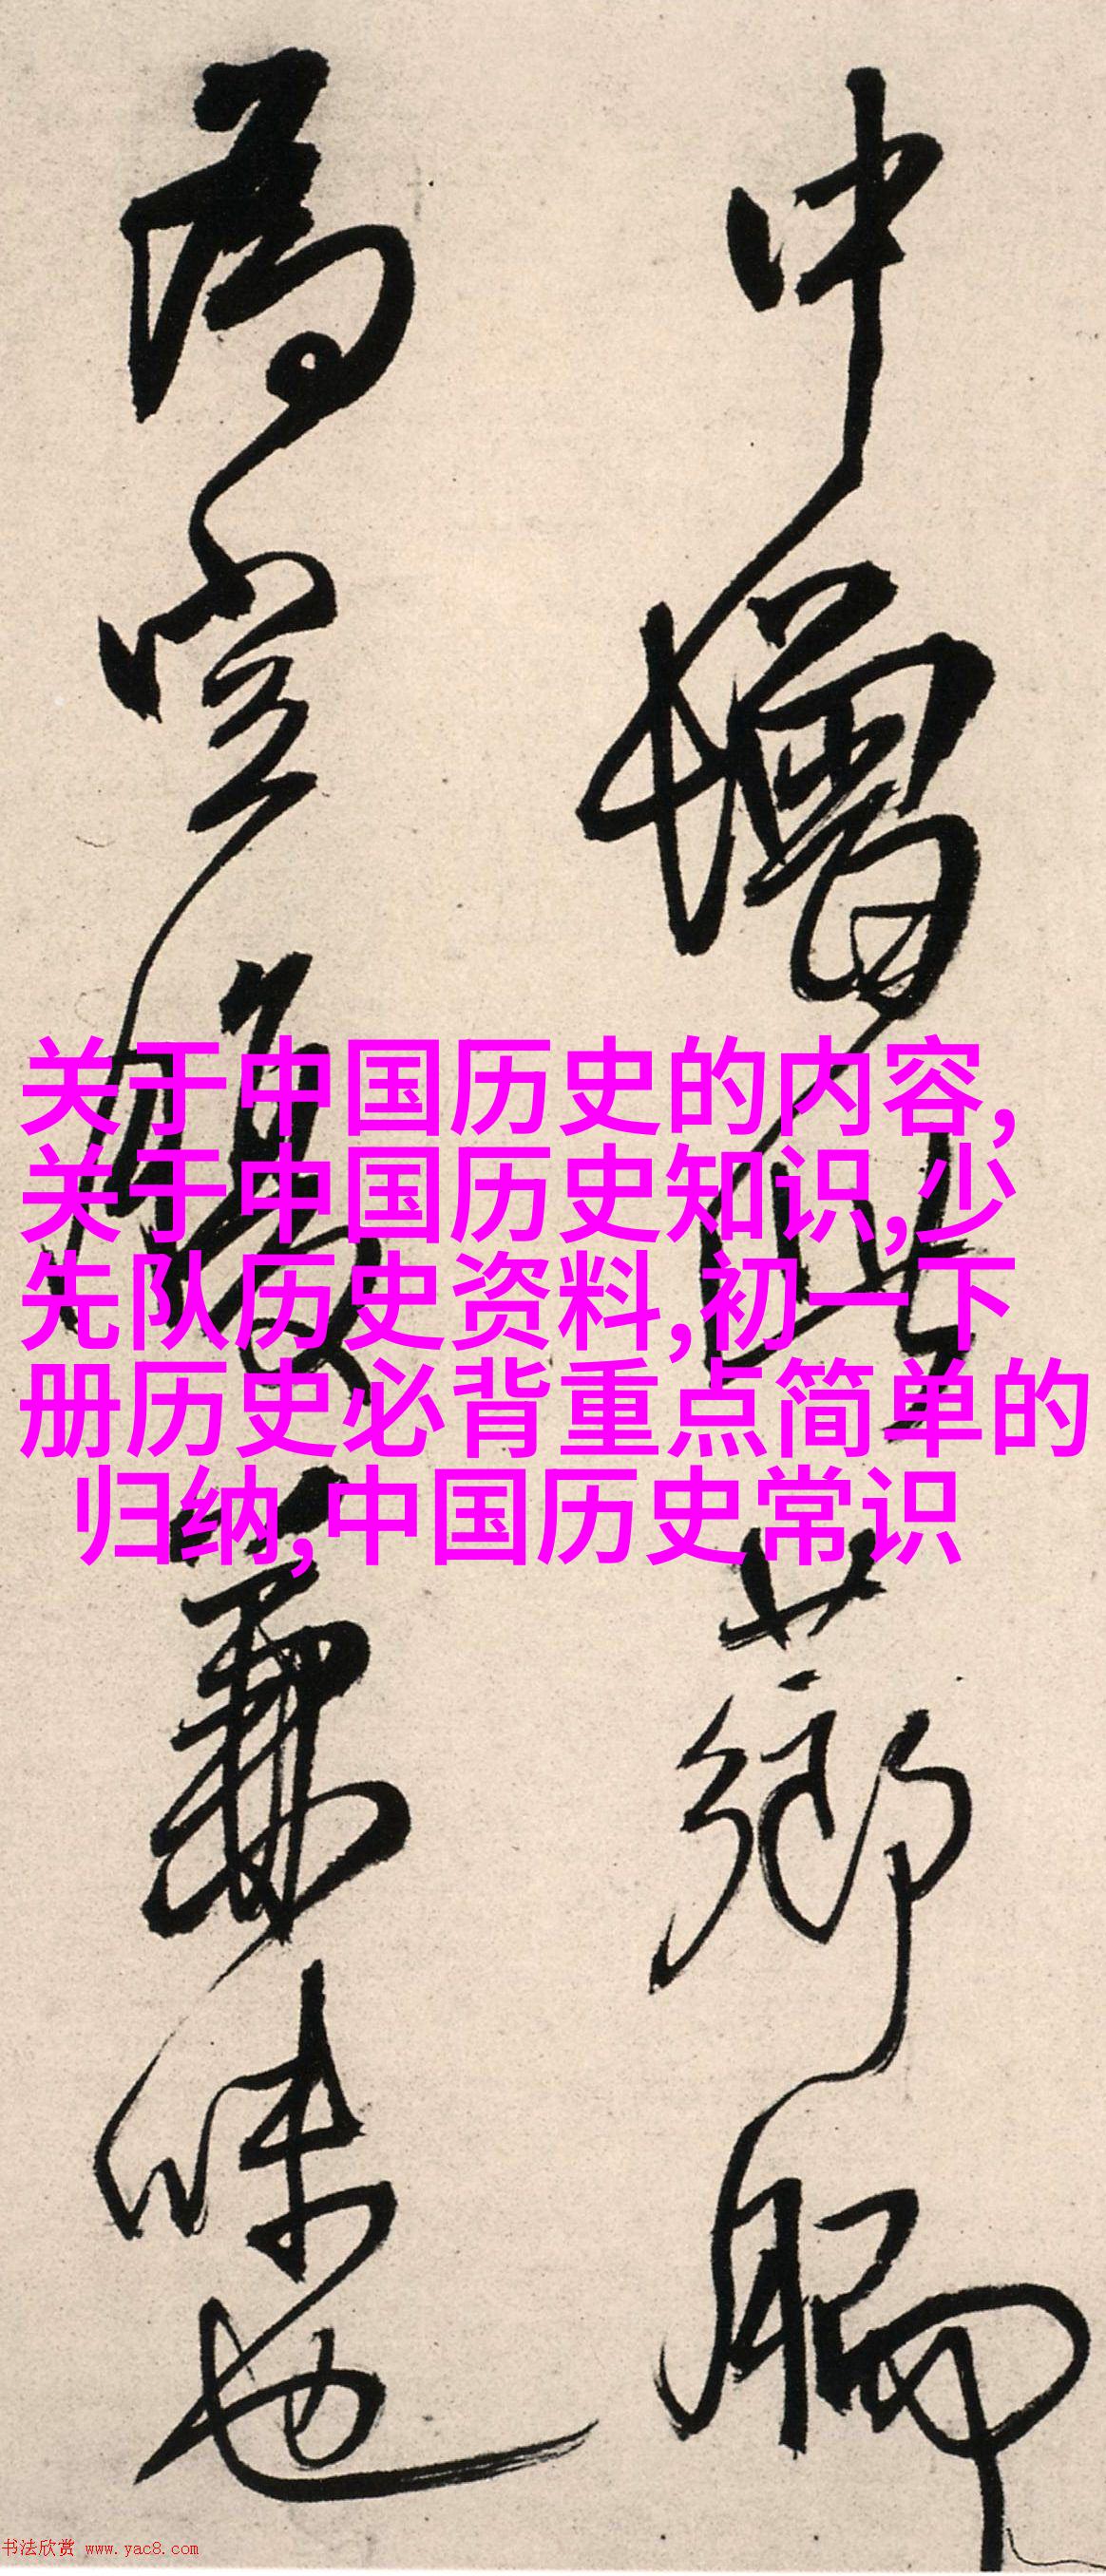 中增此芗胹
为
味也
关于中国历史的内容,
关于中国历史知识,少
先队历史资料,初一下
册历史必背重点简单的
归纳,中国历史常识
书法欣赏 www.yac8.com